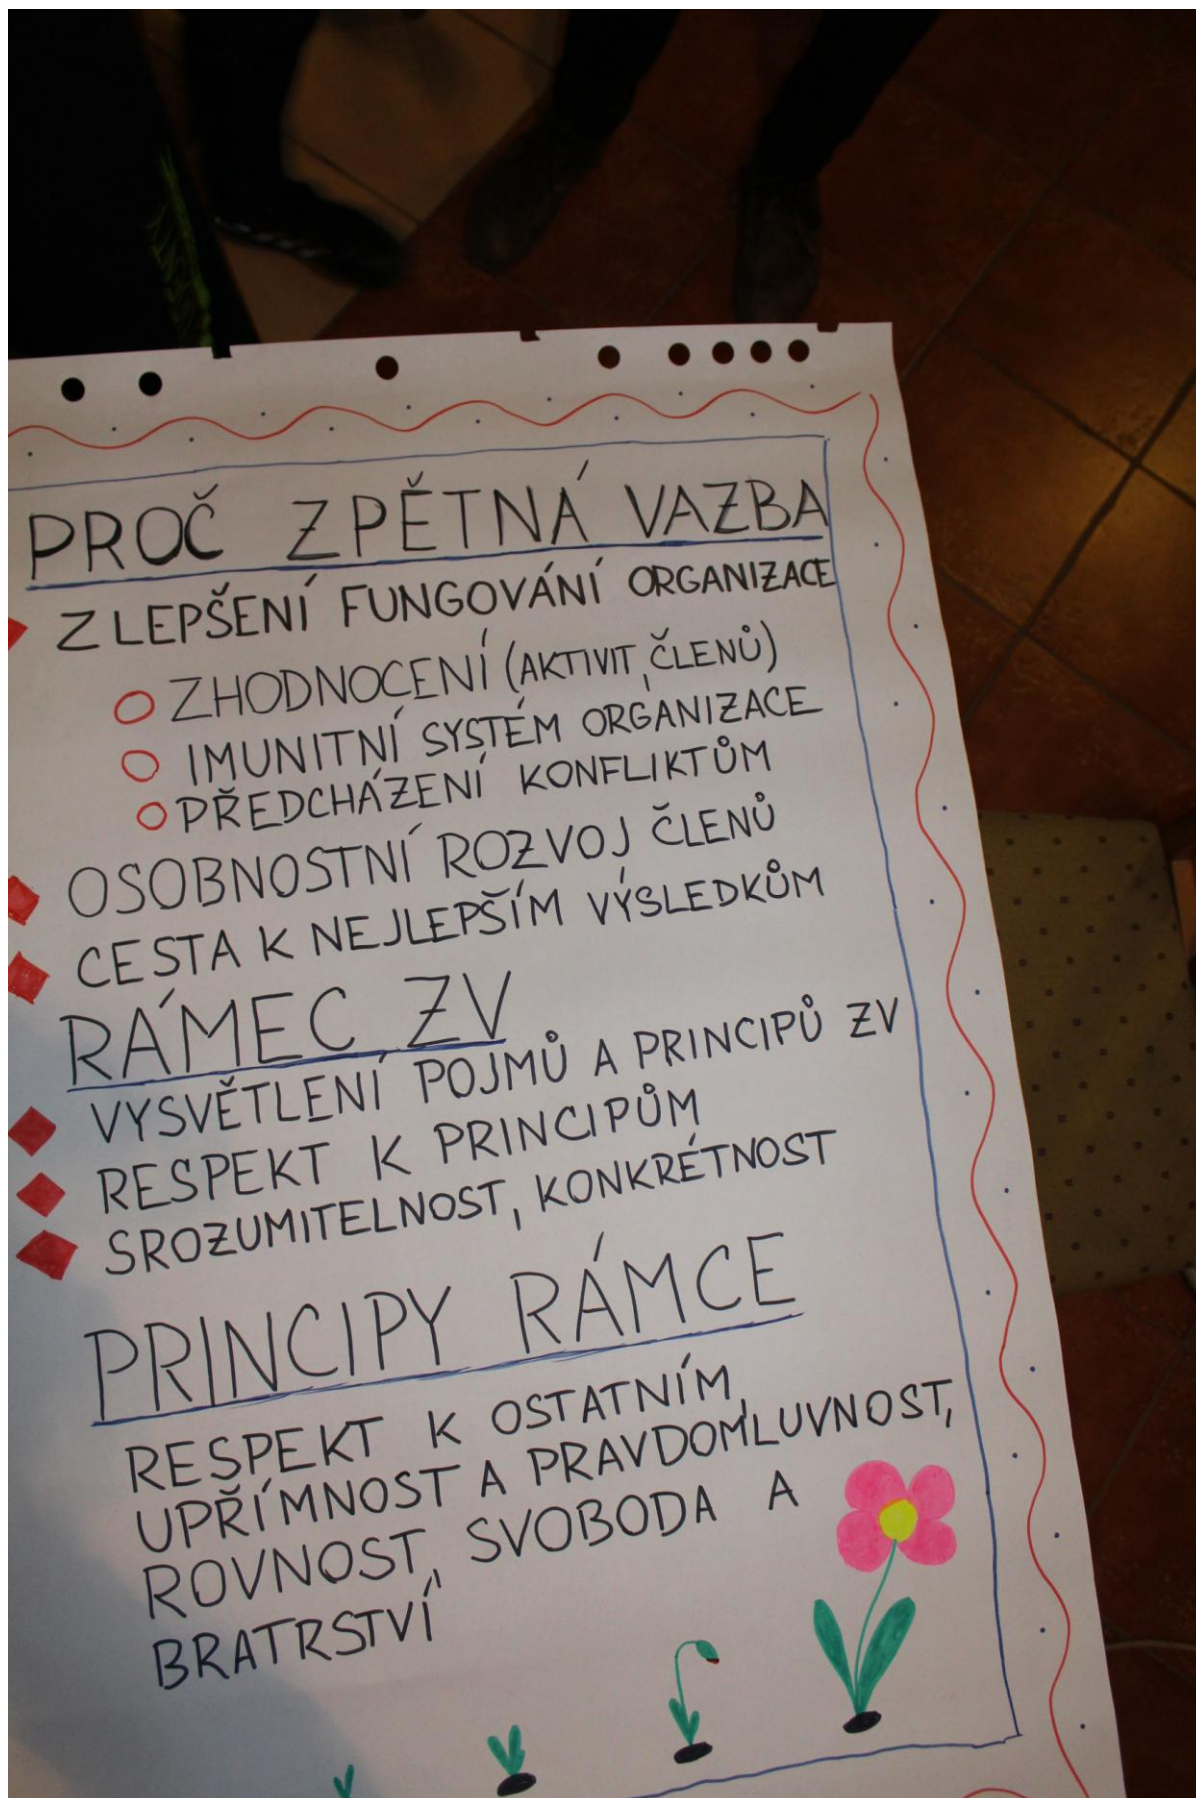 PROČ ZPĚTNÁ VAZBA
ZLEPŠENÍ FUNGOVÁNÍ ORGANIZACE
ZHODNOCENÍ (AKTIVIT, ČLENŮ)
IMUNITNÍ SYSTÉM ORGANIZACE
PŘEDCHÁZENÍ KONFLIKTŮM
OSOBNOSTNÍ ROZVOJ ČLENŮ
CESTA K NEJLEPŠÍM VÝSLEDKŮM
RÁMEC ZV
VYSVĚTLENÍ POJMŮ A PRINCIPŮ ZV
RESPEKT K PRINCIPŮM
SROZUMITELNOST, KONKRÉTNOST
PRINCIPY RÁMCE
RESPEKT K OSTATNÍM,
UPŘÍMNOST A PRAVDOMLUVNOST,
ROVNOST, SVOBODA A
BRATRSTVÍ